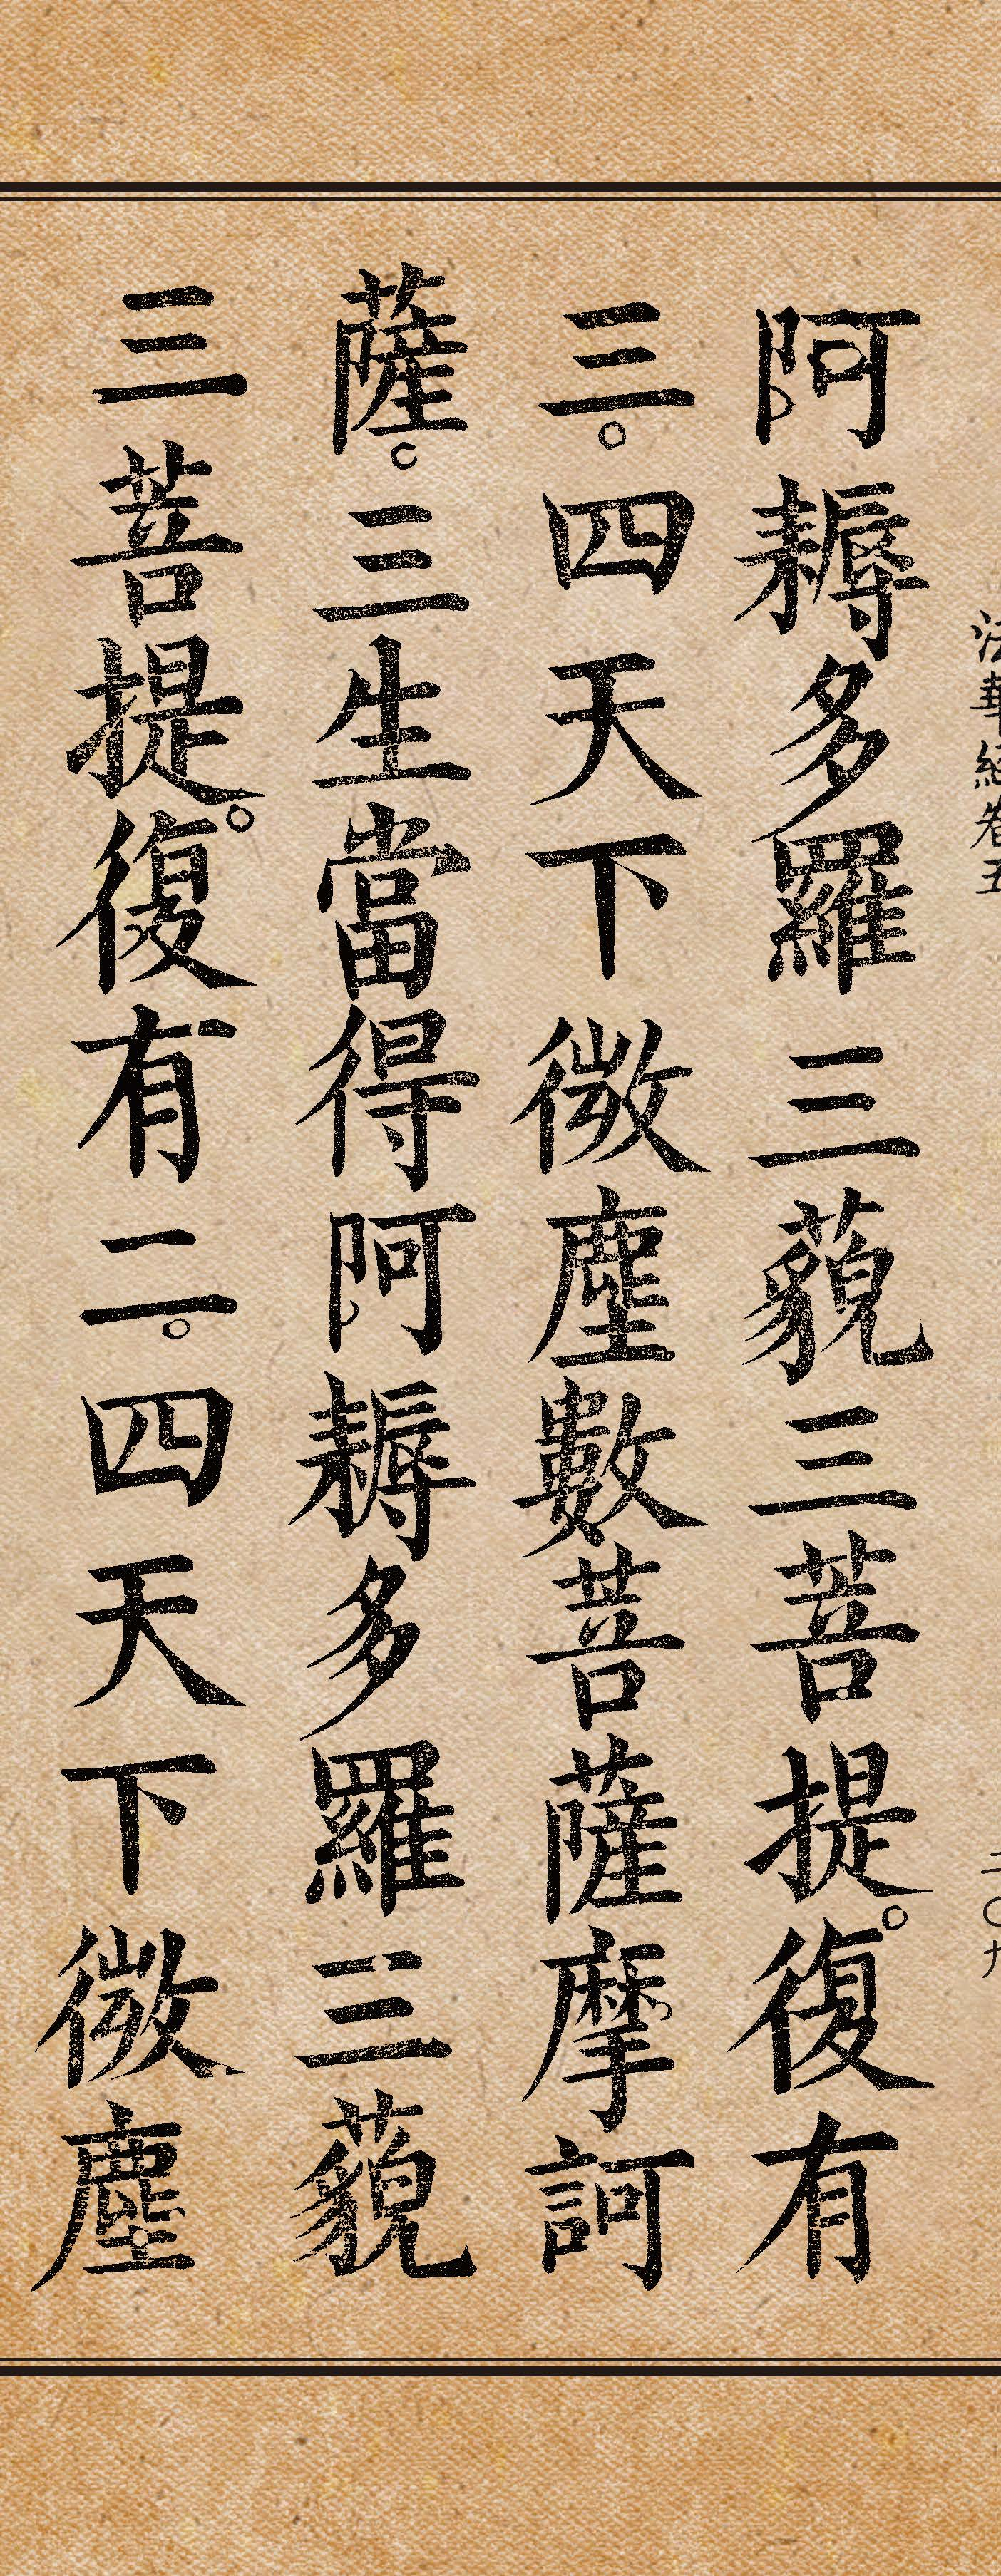 法華經卷五
二〇九
阿耨多羅三藐三菩提。復有
三。四天下微塵數菩薩摩訶
薩。三生當得阿耨多羅三藐
三菩提。復有二。四天下微塵